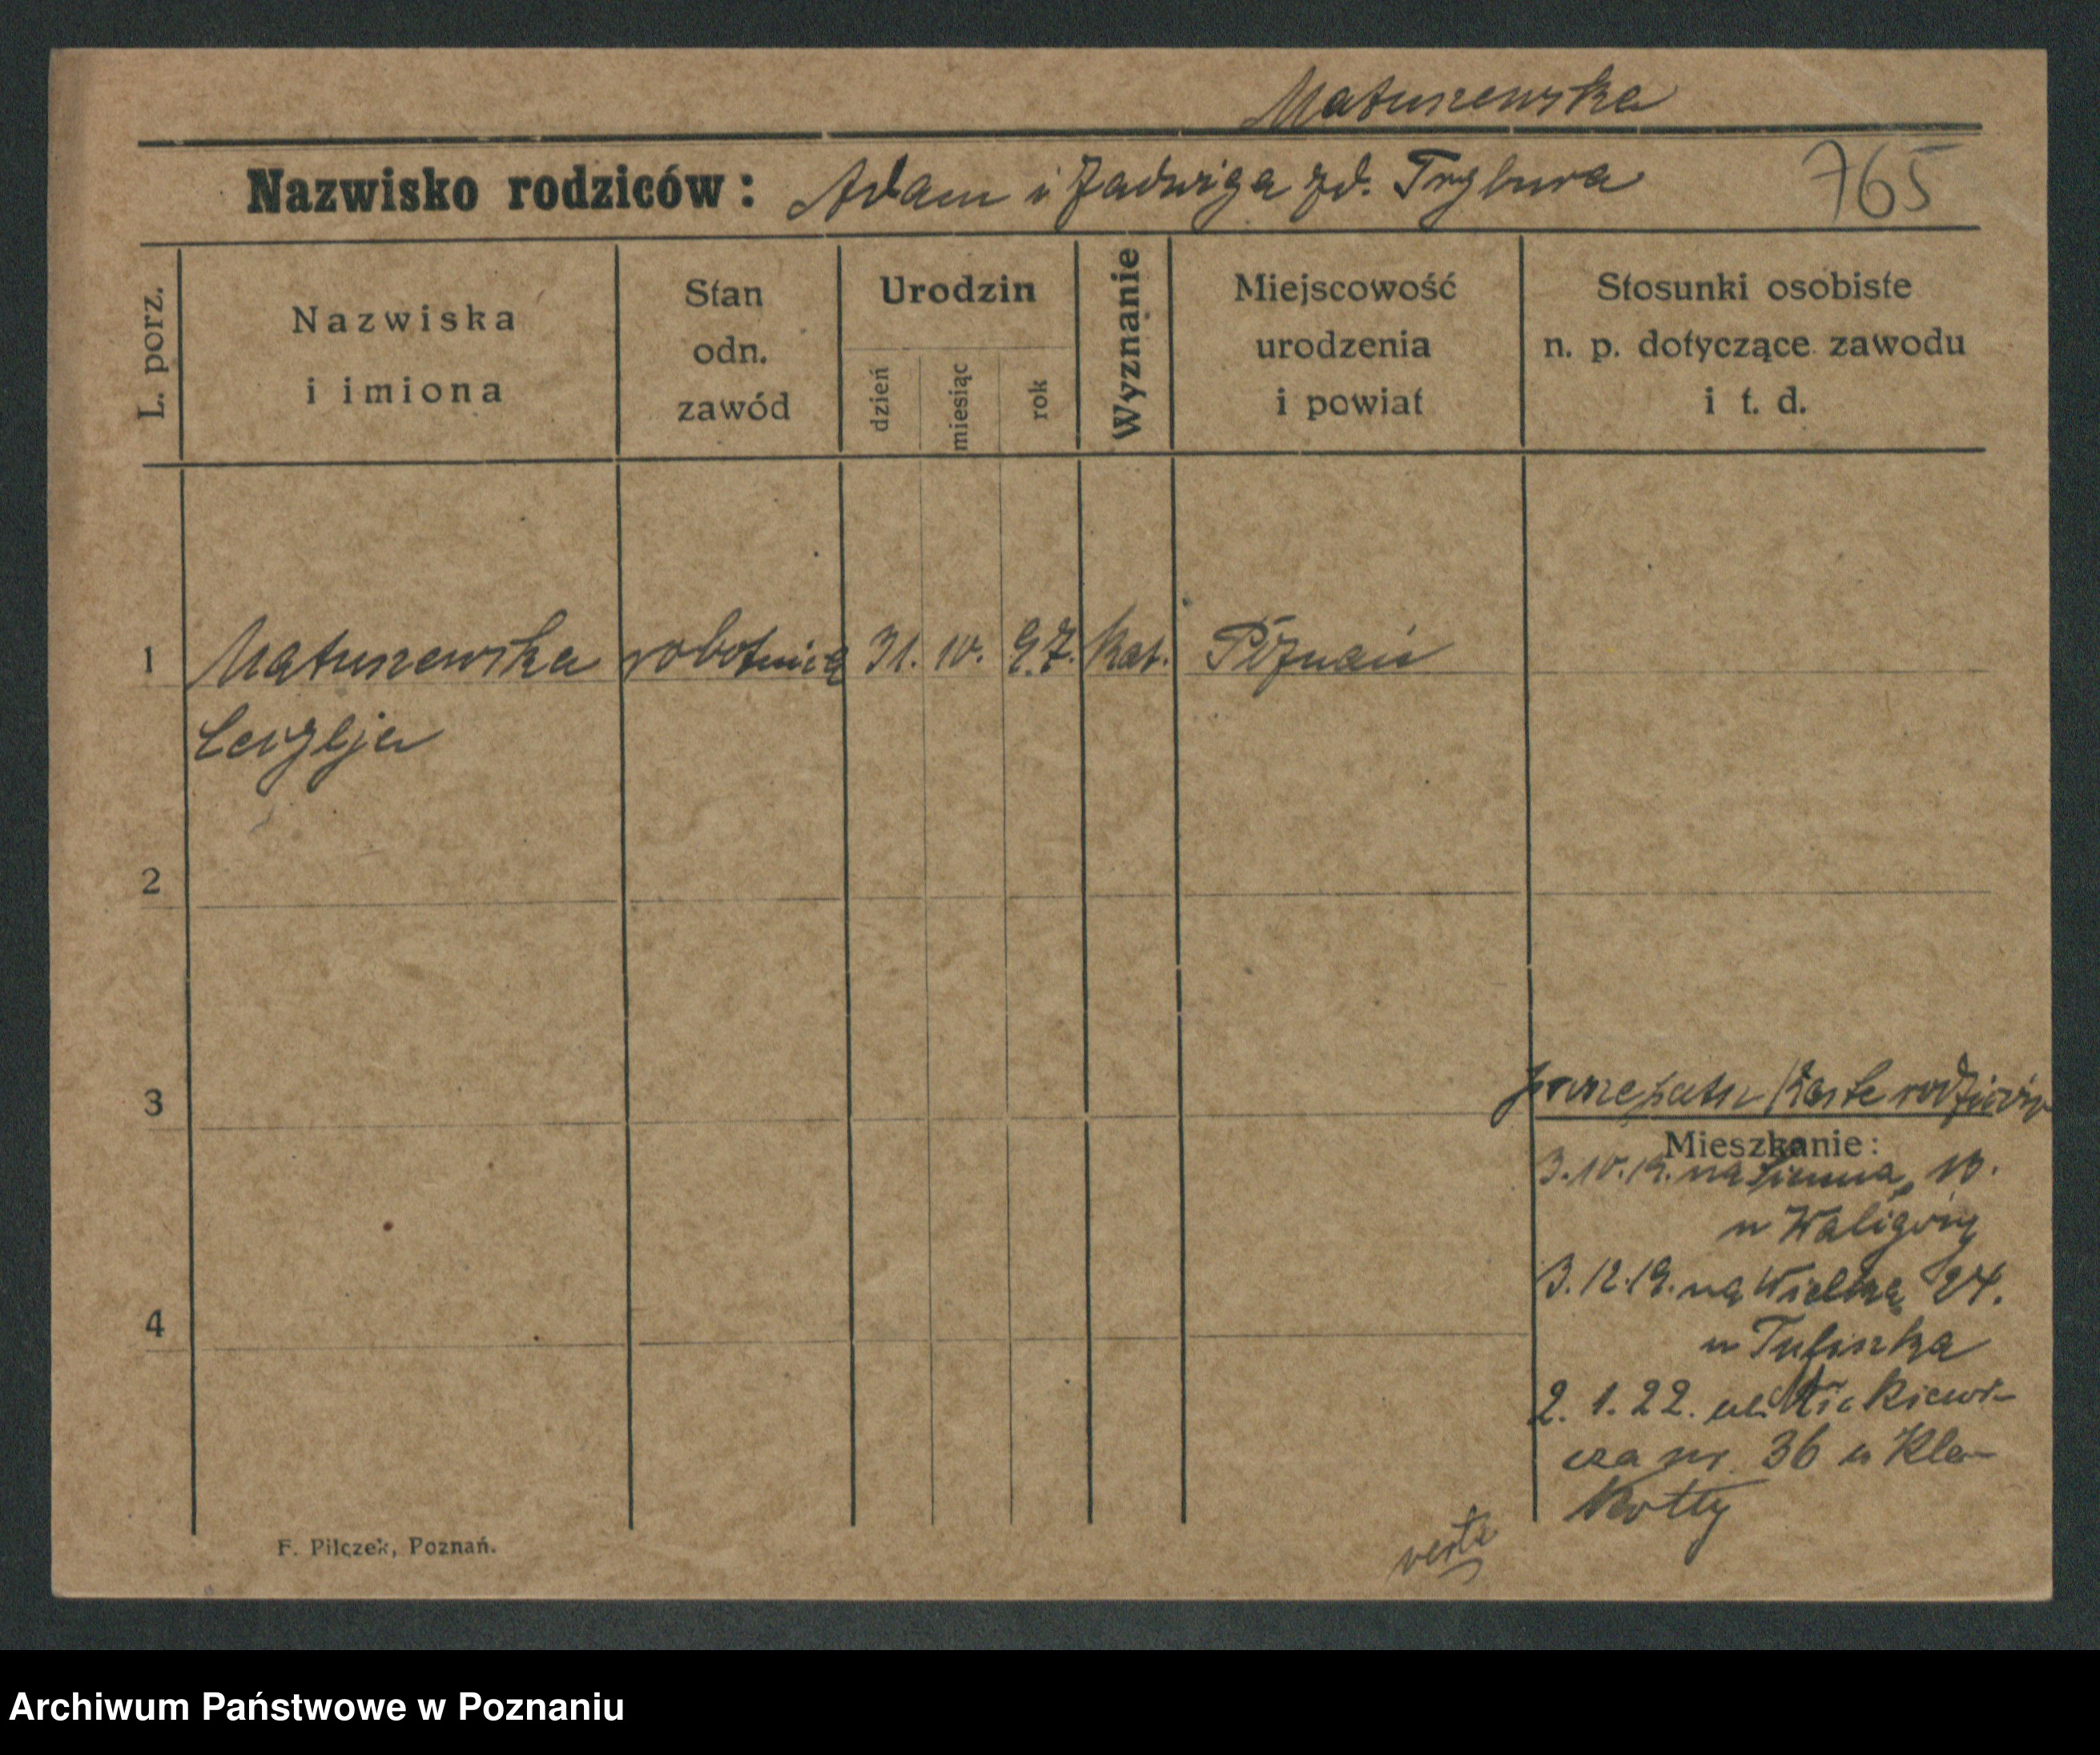 Matuszewska
Nazwisko rodziców: Adam i Jadwiga zd. Trybura
765
L. porz.
Nazwiska
i imiona
Stan
odn.
zawód
Urodzin
dzień
miesiąc
rok
Wyznanie
Miejscowość
urodzenia
i powiat
Stosunki osobiste
n. p. dotyczące zawodu
i t. d.
1 Matuszewska robotnica 31. 10. 97. kat. Poznań
Cecylja
2
3
karte rodziców
Mieszkanie:
3.10.19. na 10.
u Waligóry
3.12.19. na Wielką 24.
4
u
2. 1. 22. ul. Mickiewi-
cza nr. 36 u Kla-
kotty
verte
F. Pilczek, Poznań.
Archiwum Państwowe w Poznaniu